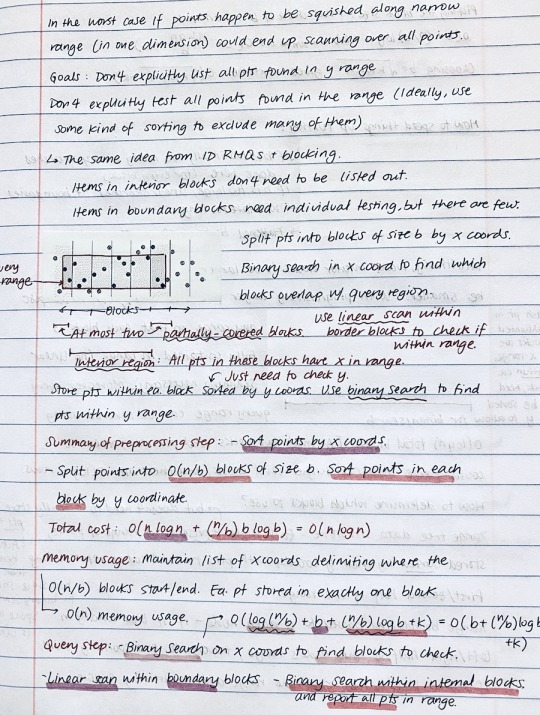 In the worst case if points happen to be squished along narrow
range (in one dimension) could end up scanning over all points.
Goals: Don't explicitly list all pts found in y range
Don't explicitly test all points found in the range (Ideally, use
some kind of sorting to exclude many of them)
↳ The same idea from 1D RMQs + blocking.
Items in interior blocks don't need to be listed out.
Items in boundary blocks need individual testing, but there are few.
Split pts into blocks of size b by x coords.
Binary search in x coord to find which
blocks overlap w/ query region.
uery
range
← Blocks →
use linear scan within
At most two partially-covered blocks.
border blocks to check if
within range.
Interior region: All pts in these blocks have x in range.
↙ Just need to check y.
Store pts within ea. block sorted by y coords. Use binary search to find
pts within y range.
Summary of preprocessing step: - Sort points by x coords.
- Split points into O(n/b) blocks of size b. Sort points in each
block by y coordinate.
Total cost: O(n log n + (n/b) b log b) = O(n log n)
Memory usage: maintain list of x coords delimiting where the
O(n/b) blocks start/end. Ea. pt stored in exactly one block
→ O(n) memory usage.
O(log(n/b) + b + (n/b) log b + k) = O(b + (n/b) log b
+k)
Query step: - Binary search on x coords to find blocks to check.
- Linear scan within boundary blocks - Binary search within internal blocks
and report all pts in range.